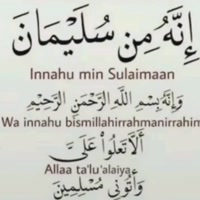 إِنَّهُ مِن سُلَيْمَانَ
Innahu min Sulaimaan
وَإِنَّهُ بِسْمِ اللَّهِ الرَّحْمَنِ الرَّحِيمِ
Wa innahu bismillahirrahmanirrahim
أَلَّا تَعْلُوا عَلَيَّ
Allaa ta'lu'alaiya
وَأْتُونِي مُسْلِمِينَ